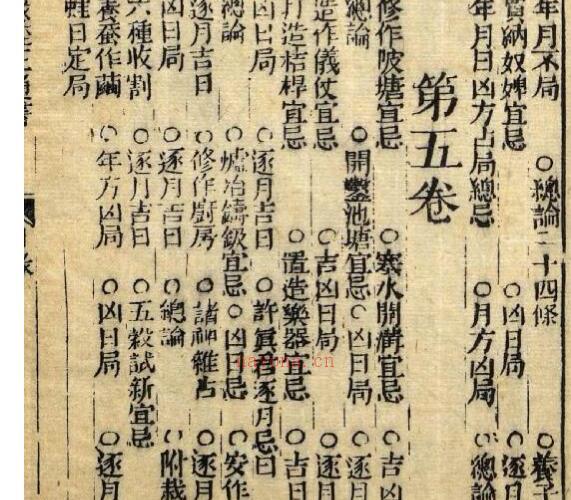 年月不局 ○總論二十四條 ○養子
買納奴婢宜忌 ○凶日局 ○逐日
年月日凶方占局總忌 ○月方凶局 ○總論
第五卷
修作陂塘宜忌 ○塞水開溝宜忌 ○吉凶
總論 ○開鑿池塘宜忌 ○凶日局 ○逐
造作儀仗宜忌 ○吉凶日局 ○逐月
打造桔槔宜忌 ○置造樂器宜忌 ○吉日
凶日局 ○逐月吉日 ○許真君逐月忌日
總論 ○爐冶鑄鈒宜忌 ○凶日忌 ○安作
逐月吉日 ○修作廚房 ○諸神雜占 ○逐月
凶日局 ○逐月吉日 ○總論 ○附栽
種收割 ○逐月吉日 ○五穀試新宜忌
養蚕作繭 ○年方凶局 ○凶日局 ○逐月
蛙日定局